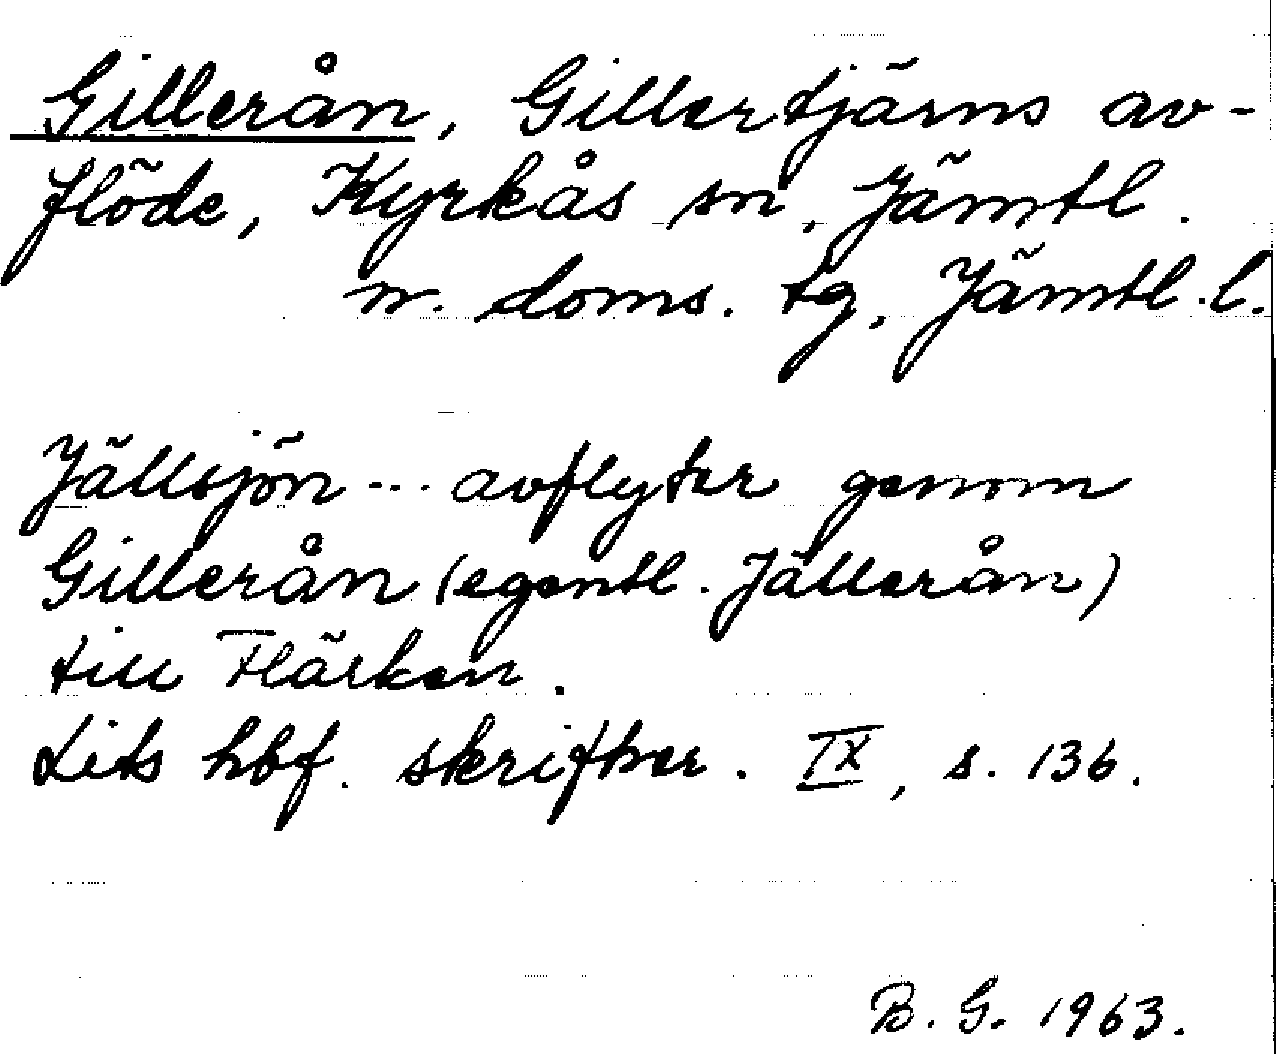 Gillerån, Gillertjärns av-
flöde, Kyrkås sn, Jämtl.
n. doms. tg, Jämtl. l.
Jällsjön ... avflyter genom
Gillerån (egentl. Jällerån)
till Flärken.
Lits hbf. skrifter. IX, s. 136.
B. G. 1963.